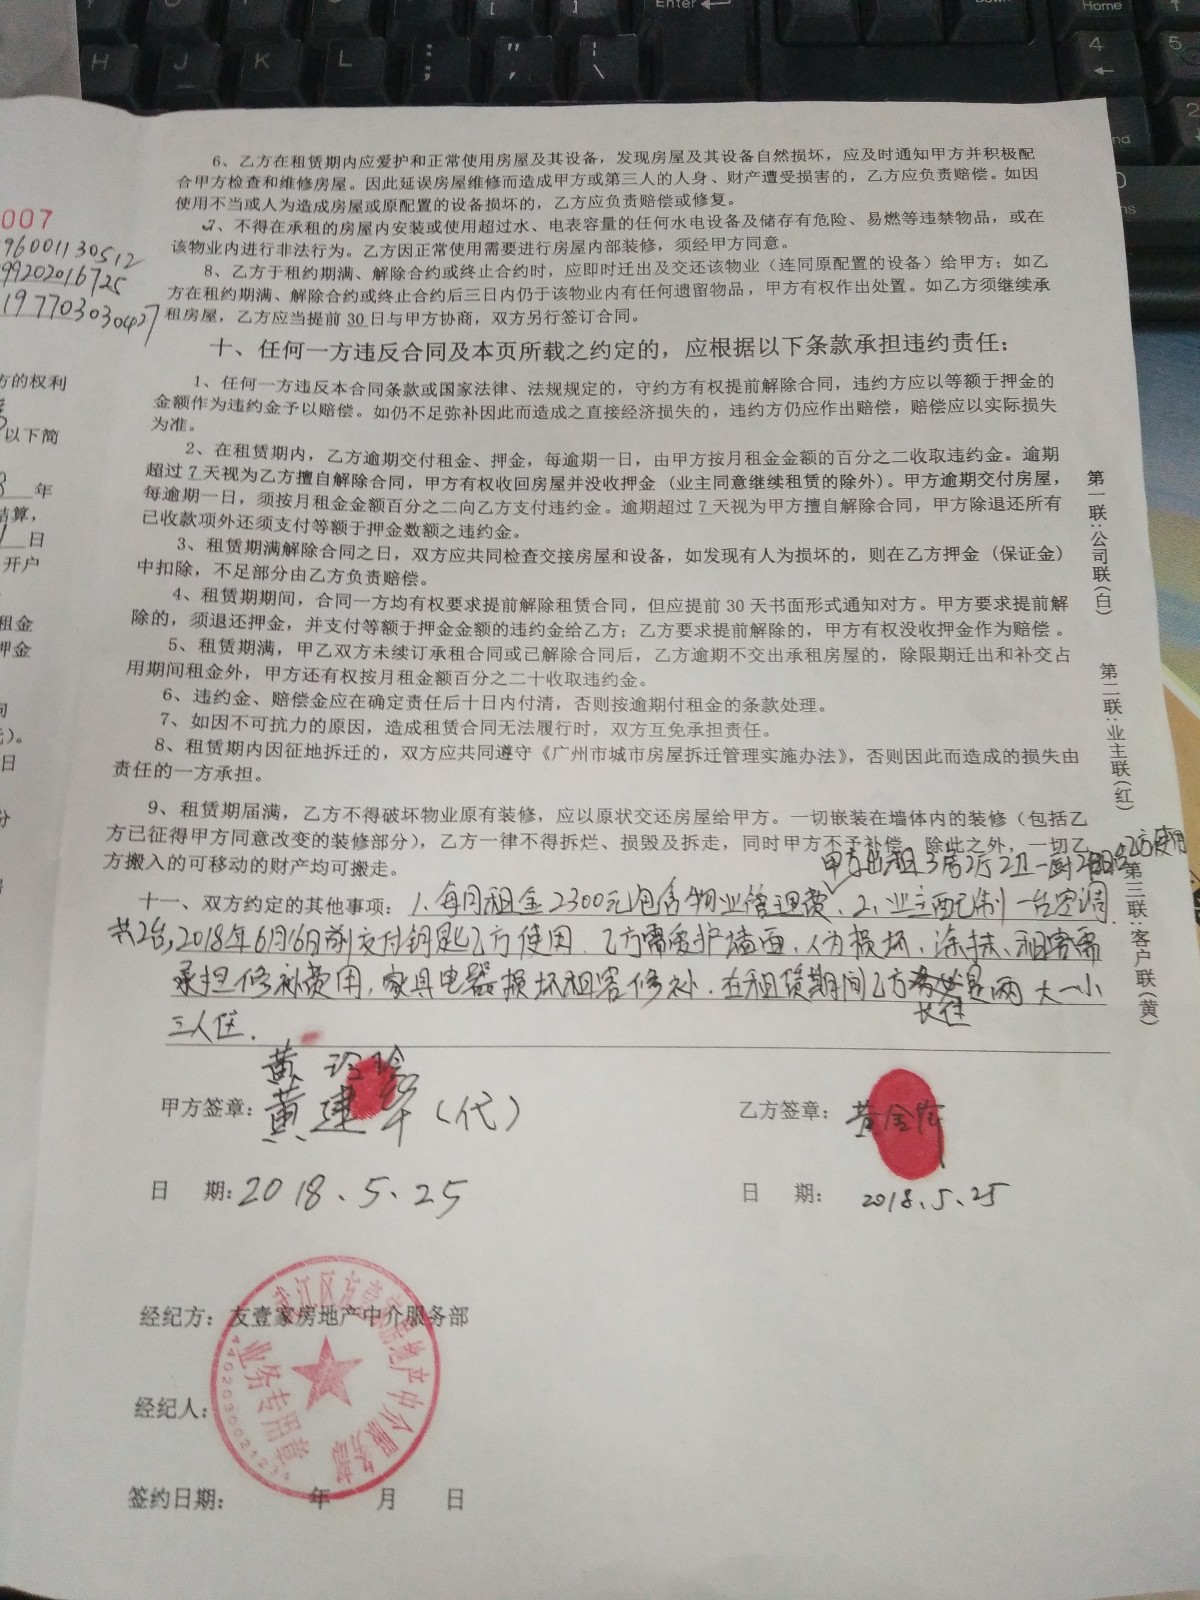 Enter
Home
H J K L
007
6、乙方在租赁期内应爱护和正常使用房屋及其设备，发现房屋及其设备自然损坏，应及时通知甲方并积极配
合甲方检查和维修房屋。因此延误房屋维修而造成甲方或第三人的人身、财产遭受损害的，乙方应负责赔偿。如因
使用不当或人为造成房屋或原配置的设备损坏的，乙方应负责赔偿或修复。
7、不得在承租的房屋内安装或使用超过水、电表容量的任何水电设备及储存有危险、易燃等违禁物品，或在
该物业内进行非法行为。乙方因正常使用需要进行房屋内部装修，须经甲方同意。
8、乙方于租约期满、解除合约或终止合约时，应即时迁出及交还该物业（连同原配置的设备）给甲方；如乙
方在租约期满、解除合约或终止合约后三日内仍于该物业内有任何遗留物品，甲方有权作出处置。如乙方须继续承
租房屋，乙方应当提前30日与甲方协商，双方另行签订合同。
十、任何一方违反合同及本页所载之约定的，应根据以下条款承担违约责任：
1、任何一方违反本合同条款或国家法律、法规规定的，守约方有权提前解除合同，违约方应以等额于押金的
金额作为违约金予以赔偿。如仍不足弥补因此而造成之直接经济损失的，违约方仍应作出赔偿，赔偿应以实际损失
为准。
2、在租赁期内，乙方逾期交付租金、押金，每逾期一日，由甲方按月租金金额的百分之二收取违约金。逾期
超过7天视为乙方擅自解除合同，甲方有权收回房屋并没收押金（业主同意继续租赁的除外）。甲方逾期交付房屋，
每逾期一日，须按月租金金额百分之二向乙方支付违约金。逾期超过7天视为甲方擅自解除合同，甲方除退还所有
已收款项外还须支付等额于押金数额之违约金。
3、租赁期满解除合同之日，双方应共同检查交接房屋和设备，如发现有人为损坏的，则在乙方押金（保证金）
中扣除，不足部分由乙方负责赔偿。
4、租赁期期间，合同一方均有权要求提前解除租赁合同，但应提前30天书面形式通知对方。甲方要求提前解
除的，须退还押金，并支付等额于押金金额的违约金给乙方；乙方要求提前解除的，甲方有权没收押金作为赔偿。
5、租赁期满，甲乙双方未续订承租合同或已解除合同后，乙方逾期不交出承租房屋的，除限期迁出和补交占
用期间租金外，甲方还有权按月租金额百分之二十收取违约金。
6、违约金、赔偿金应在确定责任后十日内付清，否则按逾期付租金的条款处理。
7、如因不可抗力的原因，造成租赁合同无法履行时，双方互免承担责任。
8、租赁期内因征地拆迁的，双方应共同遵守《广州市城市房屋拆迁管理实施办法》，否则因此而造成的损失由
责任的一方承担。
9、租赁期届满，乙方不得破坏物业原有装修，应以原状交还房屋给甲方。一切嵌装在墙体内的装修（包括乙
方已征得甲方同意改变的装修部分），乙方一律不得拆烂、损毁及拆走，同时甲方不予补偿。除此之外，一切乙
方搬入的可移动的财产均可搬走。
甲方出租3房2厅2卫一厨2阳台乙方使用
十一、双方约定的其他事项：1、每月租金2300元包含物业管理费、2、业主配制一台空调
共2台，2018年6月16日前交付钥匙乙方使用。乙方需爱护墙面，人为损坏、涂抹、租客需
承担修补费用，家具电器损坏租客修补．在租赁期间乙方是两大一小
长住
三人住．
甲方签章： 黄建华（代）
乙方签章：
日 期：2018、5、25
日 期： 2018、5、25
经纪方：友壹家房地产中介服务部
业务专用章
经纪人：
签约日期： 年 月 日
第一联：公司联（白）
第二联：业主联（红）
第三联：客户联（黄）